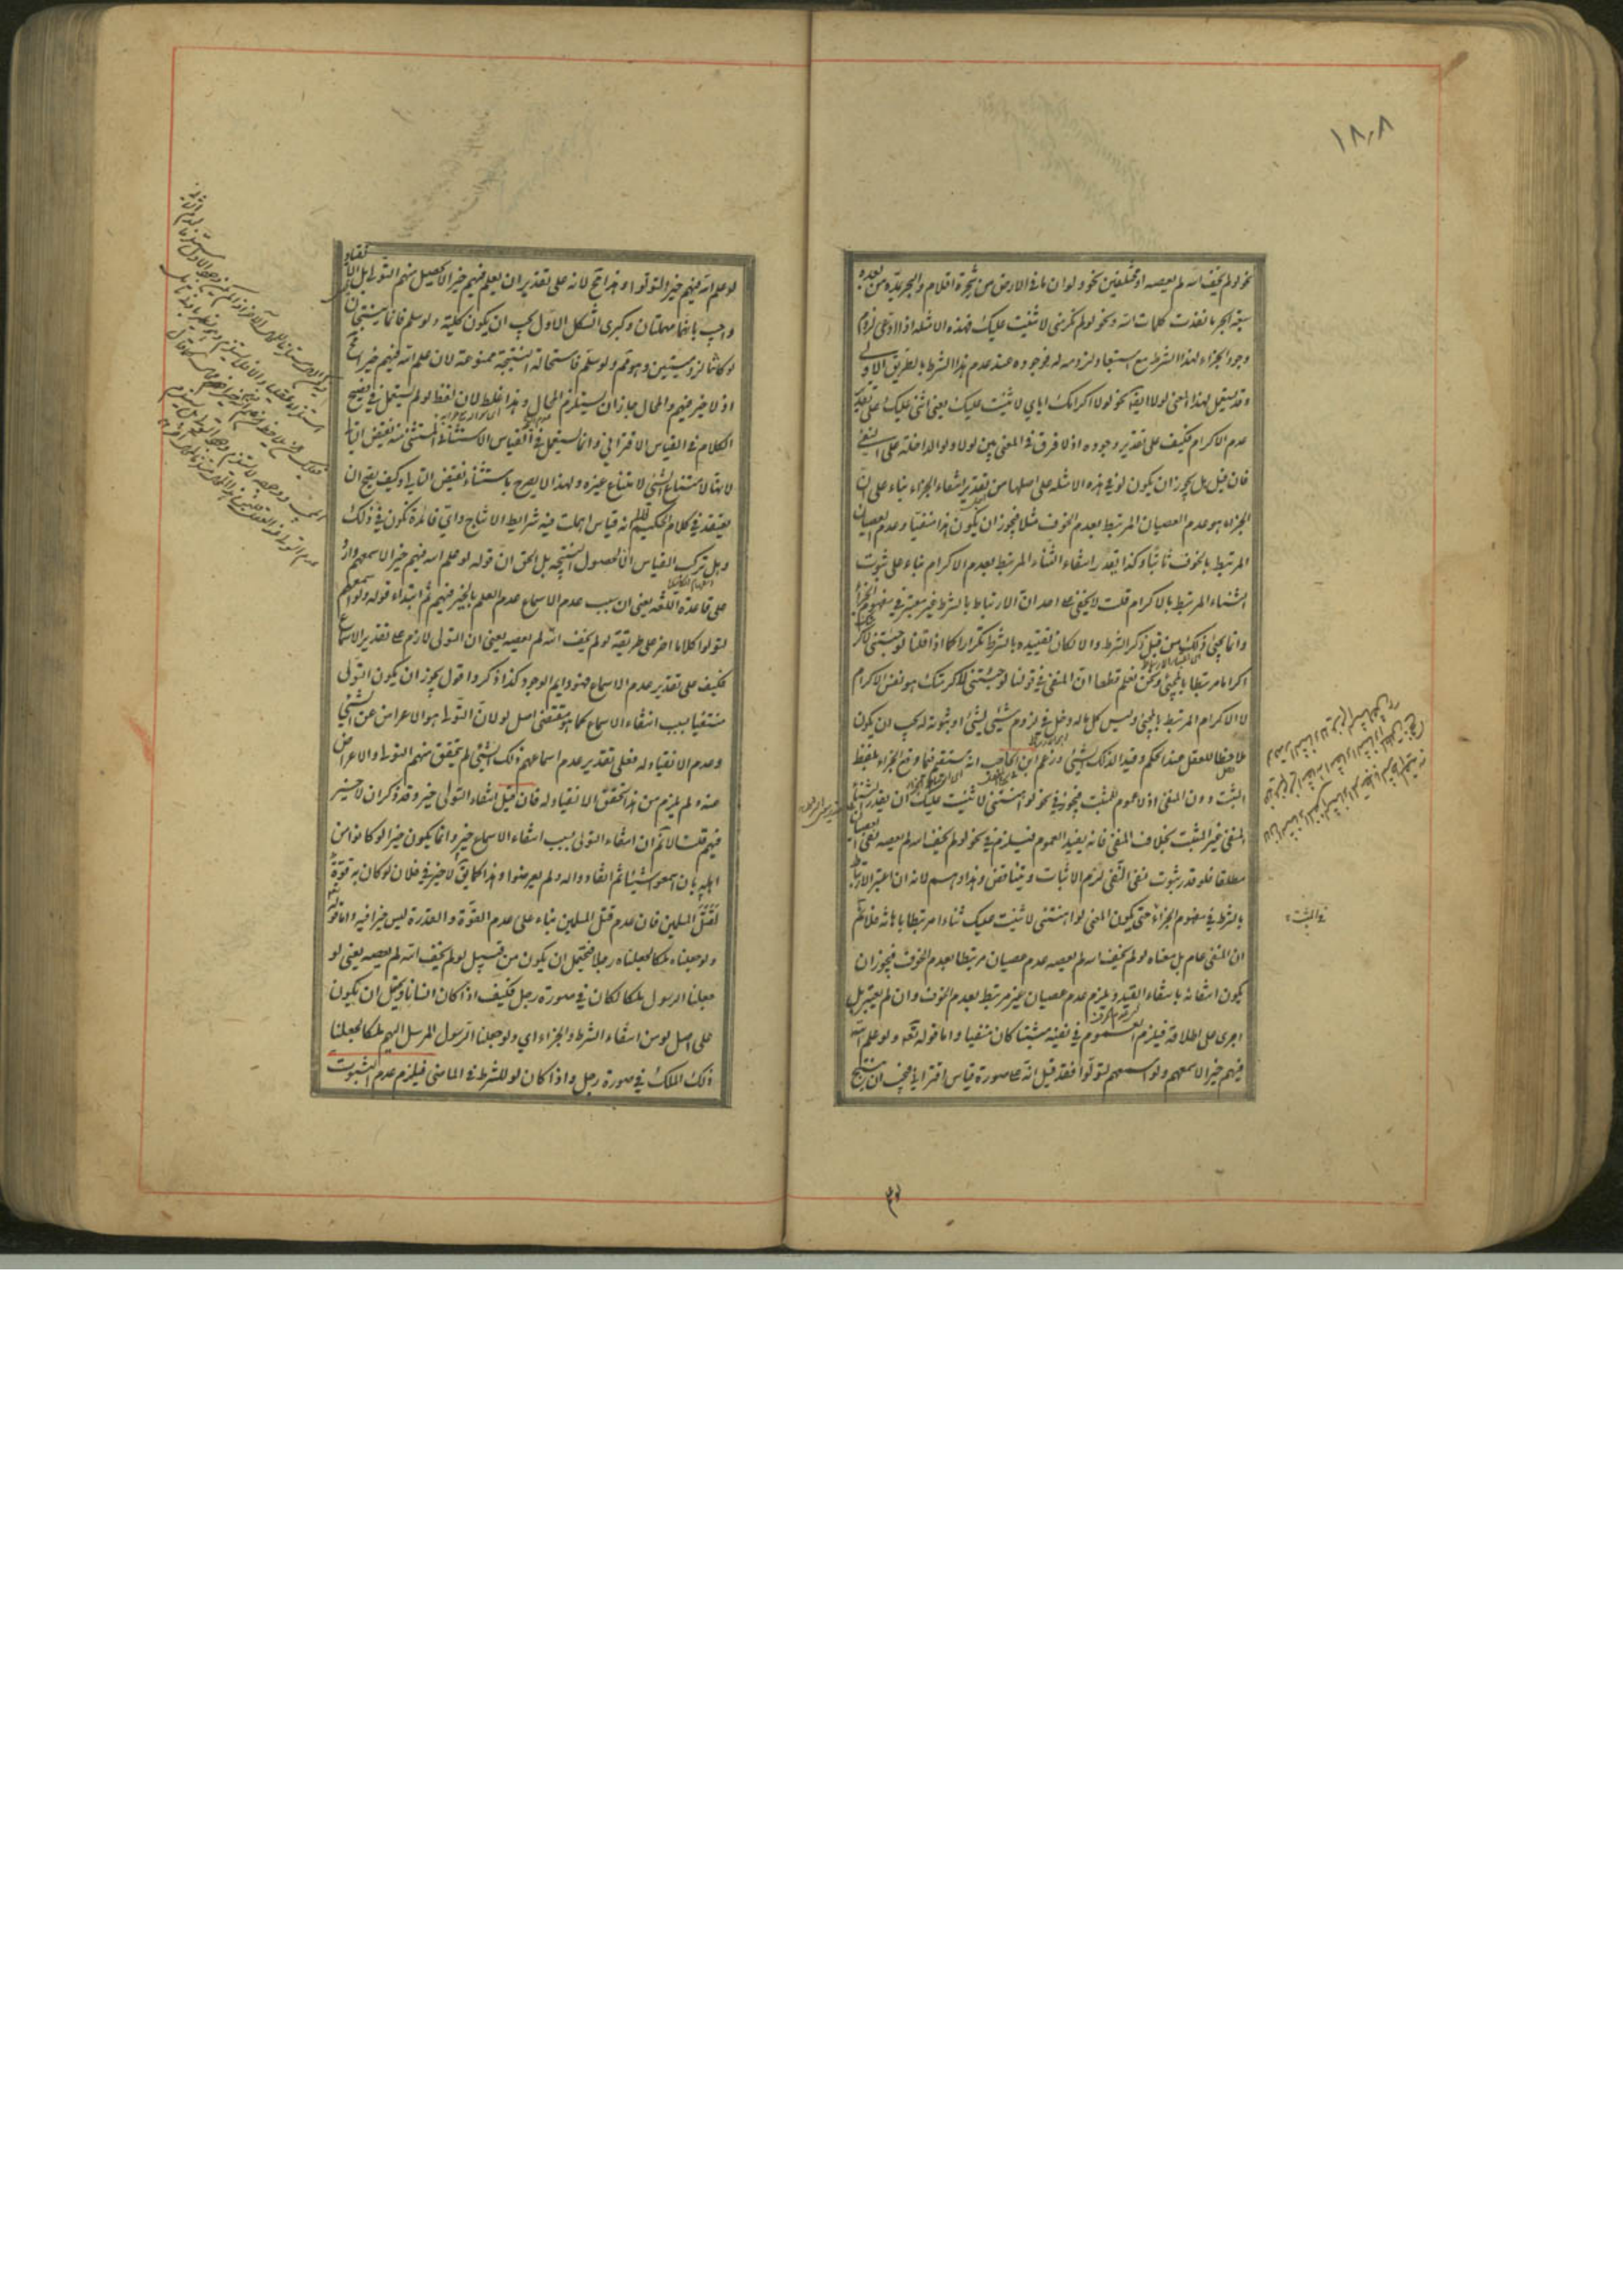 نحو لو لم يخف الله لم يعصه او مختلفين نحو ولو ان ما في الارض من شجرة اقلام والبحر يمده من بعده
سبعة ابحر ما نفدت كلمات الله ونحو لو لم تكرمني لاثنيت عليك فهذه الامثلة اذا ادعى لزوم
وجود الجزاء لهذا الشرط مع استبعاد لزومه له فوجوده عند عدم هذا الشرط بالطريق الاولى
وقد يستعمل لهذا المعنى لولا ايضا نحو لولا اكرامك اياي لاثنيت عليك يعني اثني عليك على تقدير
عدم الاكرام فكيف على تقدير وجوده اذ لا فرق في المعنى بين لولا ولو الداخلة على النفي
فان قيل هل يجوز ان يكون لو في هذه الامثلة على اصلها من تقدير انتفاء الجزاء بناء على ان
الجزاء هو عدم العصيان المرتبط بعدم الخوف مثلا فيجوز ان يكون هذا منفيا وعدم العصيان
المرتبط بالخوف ثابتا وكذا يقدر انتفاء الثناء المرتبط بعدم الاكرام بناء على ثبوت
الثناء المرتبط بالاكرام قلت لا يخفى على احد ان الارتباط بالشرط غير معتبر في مفهوم الجزاء
وانما يجئ ذلك من قبل ذكر الشرط والا لكان تقييده بالشرط تكرارا كما اذا قلنا لو جئتني لاكرمتك
اكراما مرتبطا بالمجئ ونحن نعلم قطعا ان المنفي في قولنا لو جئتني لاكرمتك هو نفس الاكرام
لا الاكرام المرتبط بالمجئ وليس كل ما له دخل في لزوم شيئ لشيئ او ثبوته له يجب ان يكون
ملاحظا للعقل عند الحكم وقيدا لذلك الشيئ وزعم ابن الحاجب انه مستقيم فيما وقع الجزاء بلفظ
المثبت دون المنفي اذ لا عموم للمثبت فيجوز في نحو لو اهنتني لاثنيت عليك ان يقدر الثناء
المنفي غير المثبت بخلاف المنفي فانه يفيد العموم فيلزم في نحو لو لم يخف الله لم يعصه نفي العصيان
مطلقا فلو قدر ثبوت نفي النفي لزم الاثبات ويتناقض وهذا وهم لانه ان اعتبر الارتباط
بالشرط في مفهوم الجزاء حتى يكون المعنى لو اهنتني لاثنيت عليك ثناء مرتبطا بالاهانة فلا نم
ان المنفي عام بل معناه لو لم يخف الله لم يعصه عدم عصيان مرتبطا بعدم الخوف فيجوز ان
يكون انتفائه بانتفاء القيد ويلزم عدم عصيان غير مرتبط بعدم الخوف وان لم يعتبر بل
اجرى على اطلاقه فيلزم العموم في نفيه مثبتا كان منفيا واما قوله تعه ولو علم الله
فيهم خيرا لاسمعهم ولو اسمعهم لتولوا فقد قيل انه على صورة قياس اقتراني فيجب ان ينتج
لو علم الله فيهم خيرا لتولوا وهذا مح لانه على تقدير ان يعلم فيهم خيرا لا يحصل منهم التولي بل الانقياد
واجيب بانهما مهملتان وكبرى الشكل الاول يجب ان يكون كلية ولو سلم فانما ينتجان
لو كانتا لزوميتين وهو مم ولو سلم فاستحالة النتيجة ممنوعة لان علم الله فيهم خيرا مح
اذ لا خير فيهم والمحال جاز ان يستلزم المحال وهذا غلط لان لفظ لو لم يستعمل في فصيح
الكلام في القياس الاقتراني وانما يستعمل في القياس الاستثنائي المستثنى منه نقيض التالي
لانها لامتناع الشيئ لامتناع غيره ولهذا لا يصرح باستثناء نقيض التالي وكيف يصح ان
يعتقد في كلام الحكيم انه قياس اهملت فيه شرايط الانتاج واي فائدة تكون في ذلك
وهل تركب القياس الا لحصول النتيجة بل الحق ان قوله لو علم الله فيهم خيرا لاسمعهم وارد
على قاعدة اللغة يعني ان سبب عدم الاسماع عدم العلم بالخير فيهم ثم ابتداء قوله ولو اسمعهم
لتولوا كلاما اخر على طريقة لو لم يخف الله لم يعصه يعني ان التولي لازم على تقدير الاسماع
فكيف على تقدير عدم الاسماع فهو دايم الوجود كذا ذكروا اقول يجوز ان يكون التولي
منتفيا بسبب انتفاء الاسماع كما هو مقتضى اصل لو لان التولي هو الاعراض عن الشيئ
وعدم الانقياد له فعلى تقدير عدم اسماعهم ذلك الشيئ لم يتحقق منهم التولي والاعراض
عنه ولم يلزم من هذا تحقق الانقياد له فان قيل انتفاء التولي خير وقد ذكر ان لا خير
فيهم قلت لا نم ان انتفاء التولي بسبب انتفاء الاسماع خير وانما يكون خيرا لو كانوا من
اهله بان اسمعوا شيئا ثم انقادوا له ولم يعرضوا وهذا كما يق لا خير في فلان لو كان به قوة
لقتل المسلمين فان عدم قتل المسلمين بناء على عدم القوة والقدرة ليس خيرا فيه واما قوله تعه
ولو جعلناه ملكا لجعلناه رجلا فيحتمل ان يكون من قبيل لو لم يخف الله لم يعصه يعني لو
جعلنا الرسول ملكا لكان في صورة رجل فكيف اذا كان انسانا ويحتمل ان يكون
على اصل لو من انتفاء الشرط والجزاء اي ولو جعلنا الرسول المرسل اليهم ملكا لجعلنا
ذلك الملك في صورة رجل واذا كان لو للشرط في الماضي فيلزم عدم الثبوت